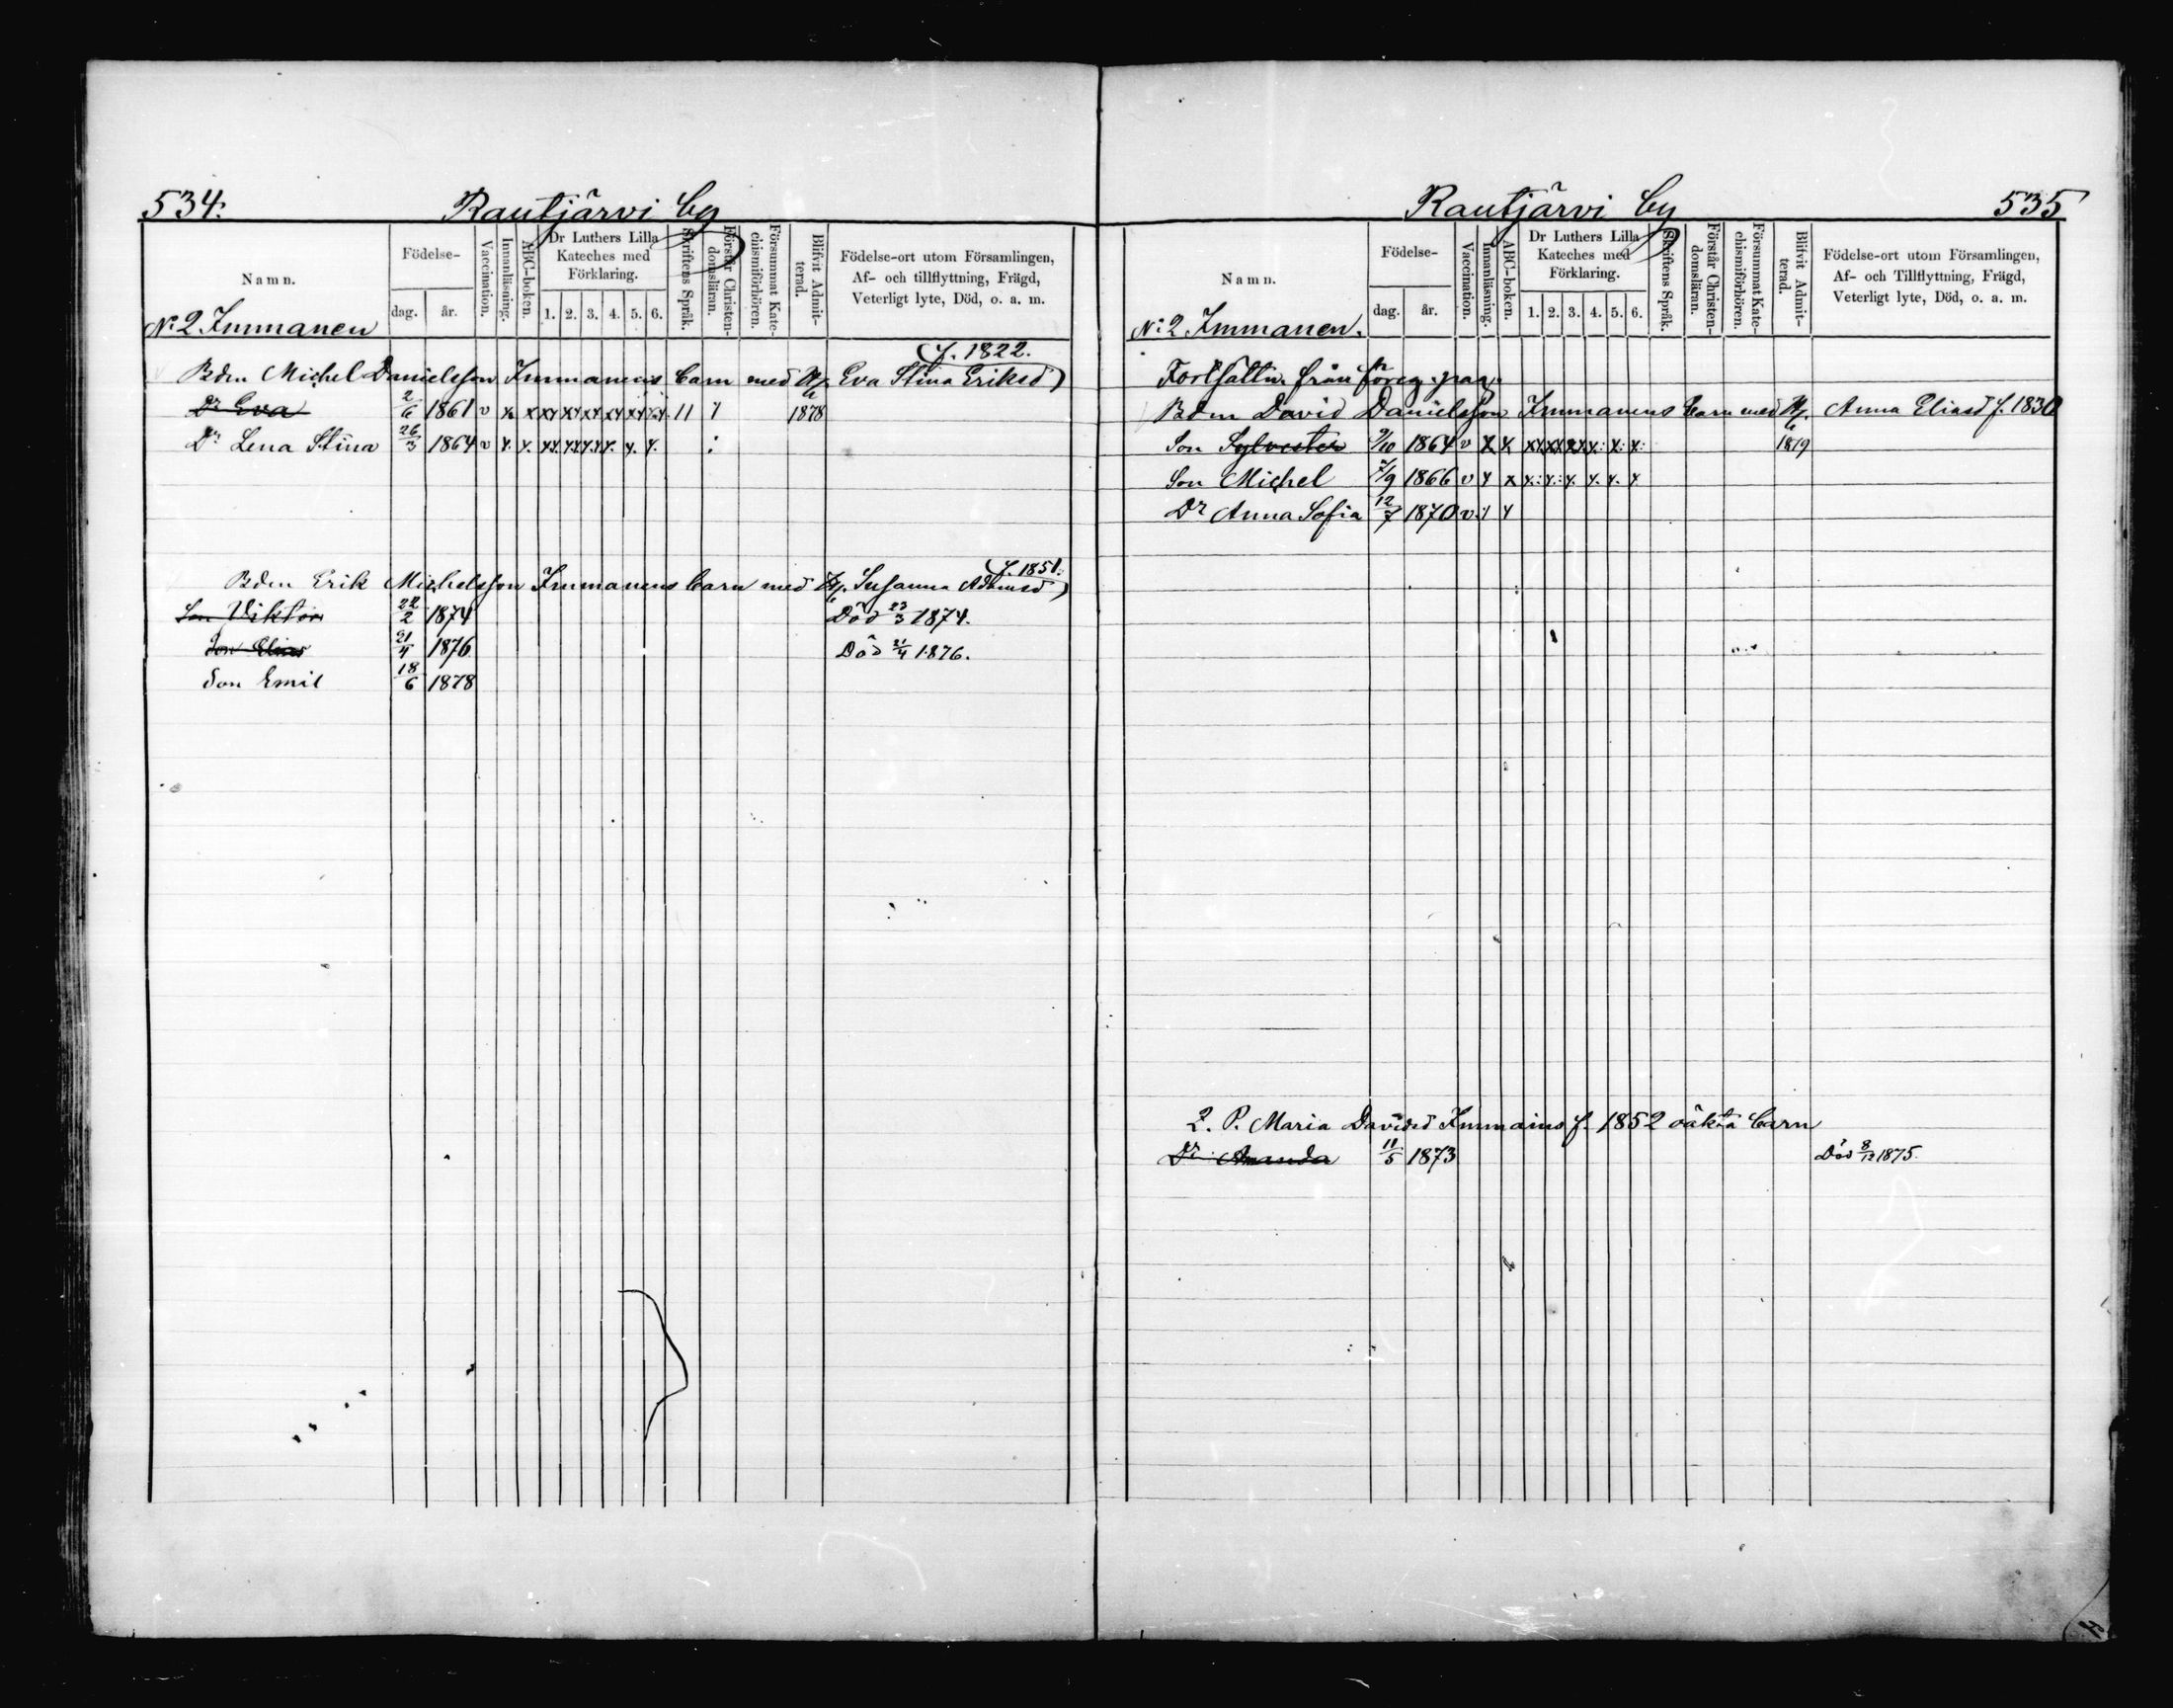 534.
Rautjärvi by
Namn.
Födelse-
dag.
år.
Vaccination.
Innanläsning.
ABC-boken.
Dr Luthers Lilla
Kateches med
Förklaring.
1. 2. 3. 4. 5. 6.
Skriftens Språk.
Förstår Christen-
domsläran.
Försummat Kate-
chismiförhören.
Blifvit Admit-
terad.
Födelse-ort utom Församlingen,
Af- och tillflyttning, Frägd,
Veterligt lyte, Död, o. a. m.
N:2 Immanen
f. 1822.
Bdn Michel Danielsson Immanens barn med Eva Stina Eriksd)
Dr Eva 2/6 1861 v 1878
Dr Lena Stina 26/3 1864 v
f. 1851.
Bdn Erik Michelsson Immanens barn med Susanna Adamsd)
Son Viktor 22/2 1874 Död 23/3 1874.
Son Elias 21/4 1876 Död 21/4 1876.
Son Emil 18/6 1878
Rautjärvi by
535
Namn.
Födelse-
dag.
år.
Vaccination.
Innanläsning.
ABC-boken.
Dr Luthers Lilla
Kateches med
Förklaring.
1. 2. 3. 4. 5. 6.
Skriftens Språk.
Förstår Christen-
domsläran.
Försummat Kate-
chismiförhören.
Blifvit Admit-
terad.
Födelse-ort utom Församlingen,
Af- och Tillflyttning, Frägd,
Veterligt lyte, Död, o. a. m.
N:2 Immanen.
Fortsättn. från föreg. pag.
Bdn David Danielsson Immanens barn med Anna Eliasd f. 1830
Son Sylvester 9/10 1864 v 1879
Son Michel 7/9 1866 v
Dr Anna Sofia 12/7 1870 v
P. Maria Davidsd f. 1852 oäkta barn
Dr Amanda 11/5 1873 Död 8/12 1875.